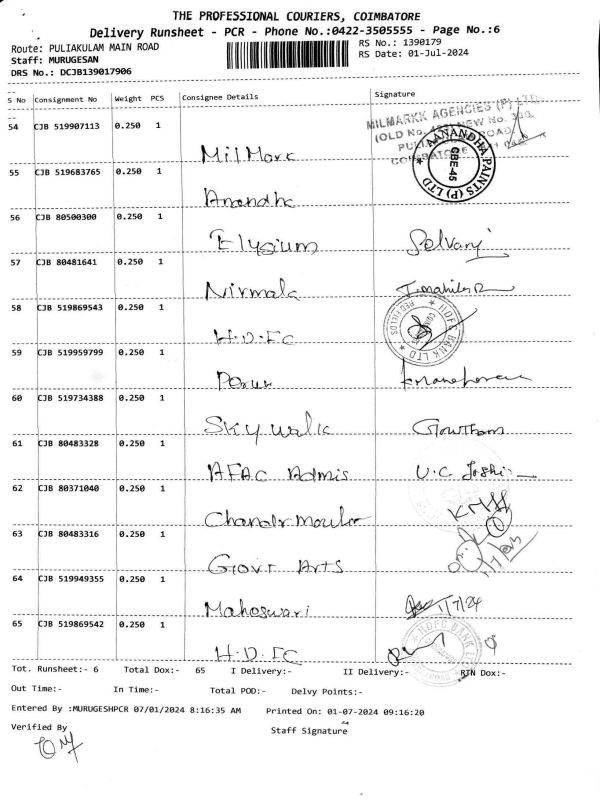 THE PROFESSIONAL COURIERS, COIMBATORE
Delivery Runsheet - PCR - Phone No.:0422-3505555 - Page No.:6
Route: PULIAKULAM MAIN ROAD
RS No.: 1390179
Staff: MURUGESAN
RS Date: 01-Jul-2024
DRS No.: DCJB139017906
S No Consignment No Weight PCS Consignee Details Signature
54 CJB 519907113 0.250 1
MILMARKK AGENCIES (P) LTD
MilMark
AANANDHA PAINTS (P) LTD
CBE-45
55 CJB 519683765 0.250 1
Anandha
56 CJB 80500300 0.250 1
Elysium Selvary
57 CJB 80481641 0.250 1
Nirmala
58 CJB 519869543 0.250 1
H.D.FC
HDFC BANK LTD
RED FIELDS
59 CJB 519959799 0.250 1
Porur
60 CJB 519734388 0.250 1
Sky walk Gowtham
61 CJB 80483328 0.250 1
AFAC Admis U.C Joshi
62 CJB 80371040 0.250 1
Chandrmouli
63 CJB 80483316 0.250 1
Govt Arts
64 CJB 519949355 0.250 1
Maheswari 1/7/24
65 CJB 519869542 0.250 1
H.D.FC
HDFC BANK
Tot. Runsheet:- 6 Total Dox:- 65 I Delivery:- II Delivery:- RTN Dox:-
Out Time:- In Time:- Total POD:- Delvy Points:-
Entered By :MURUGESHPCR 07/01/2024 8:16:35 AM Printed On: 01-07-2024 09:16:20
Verified By Staff Signature